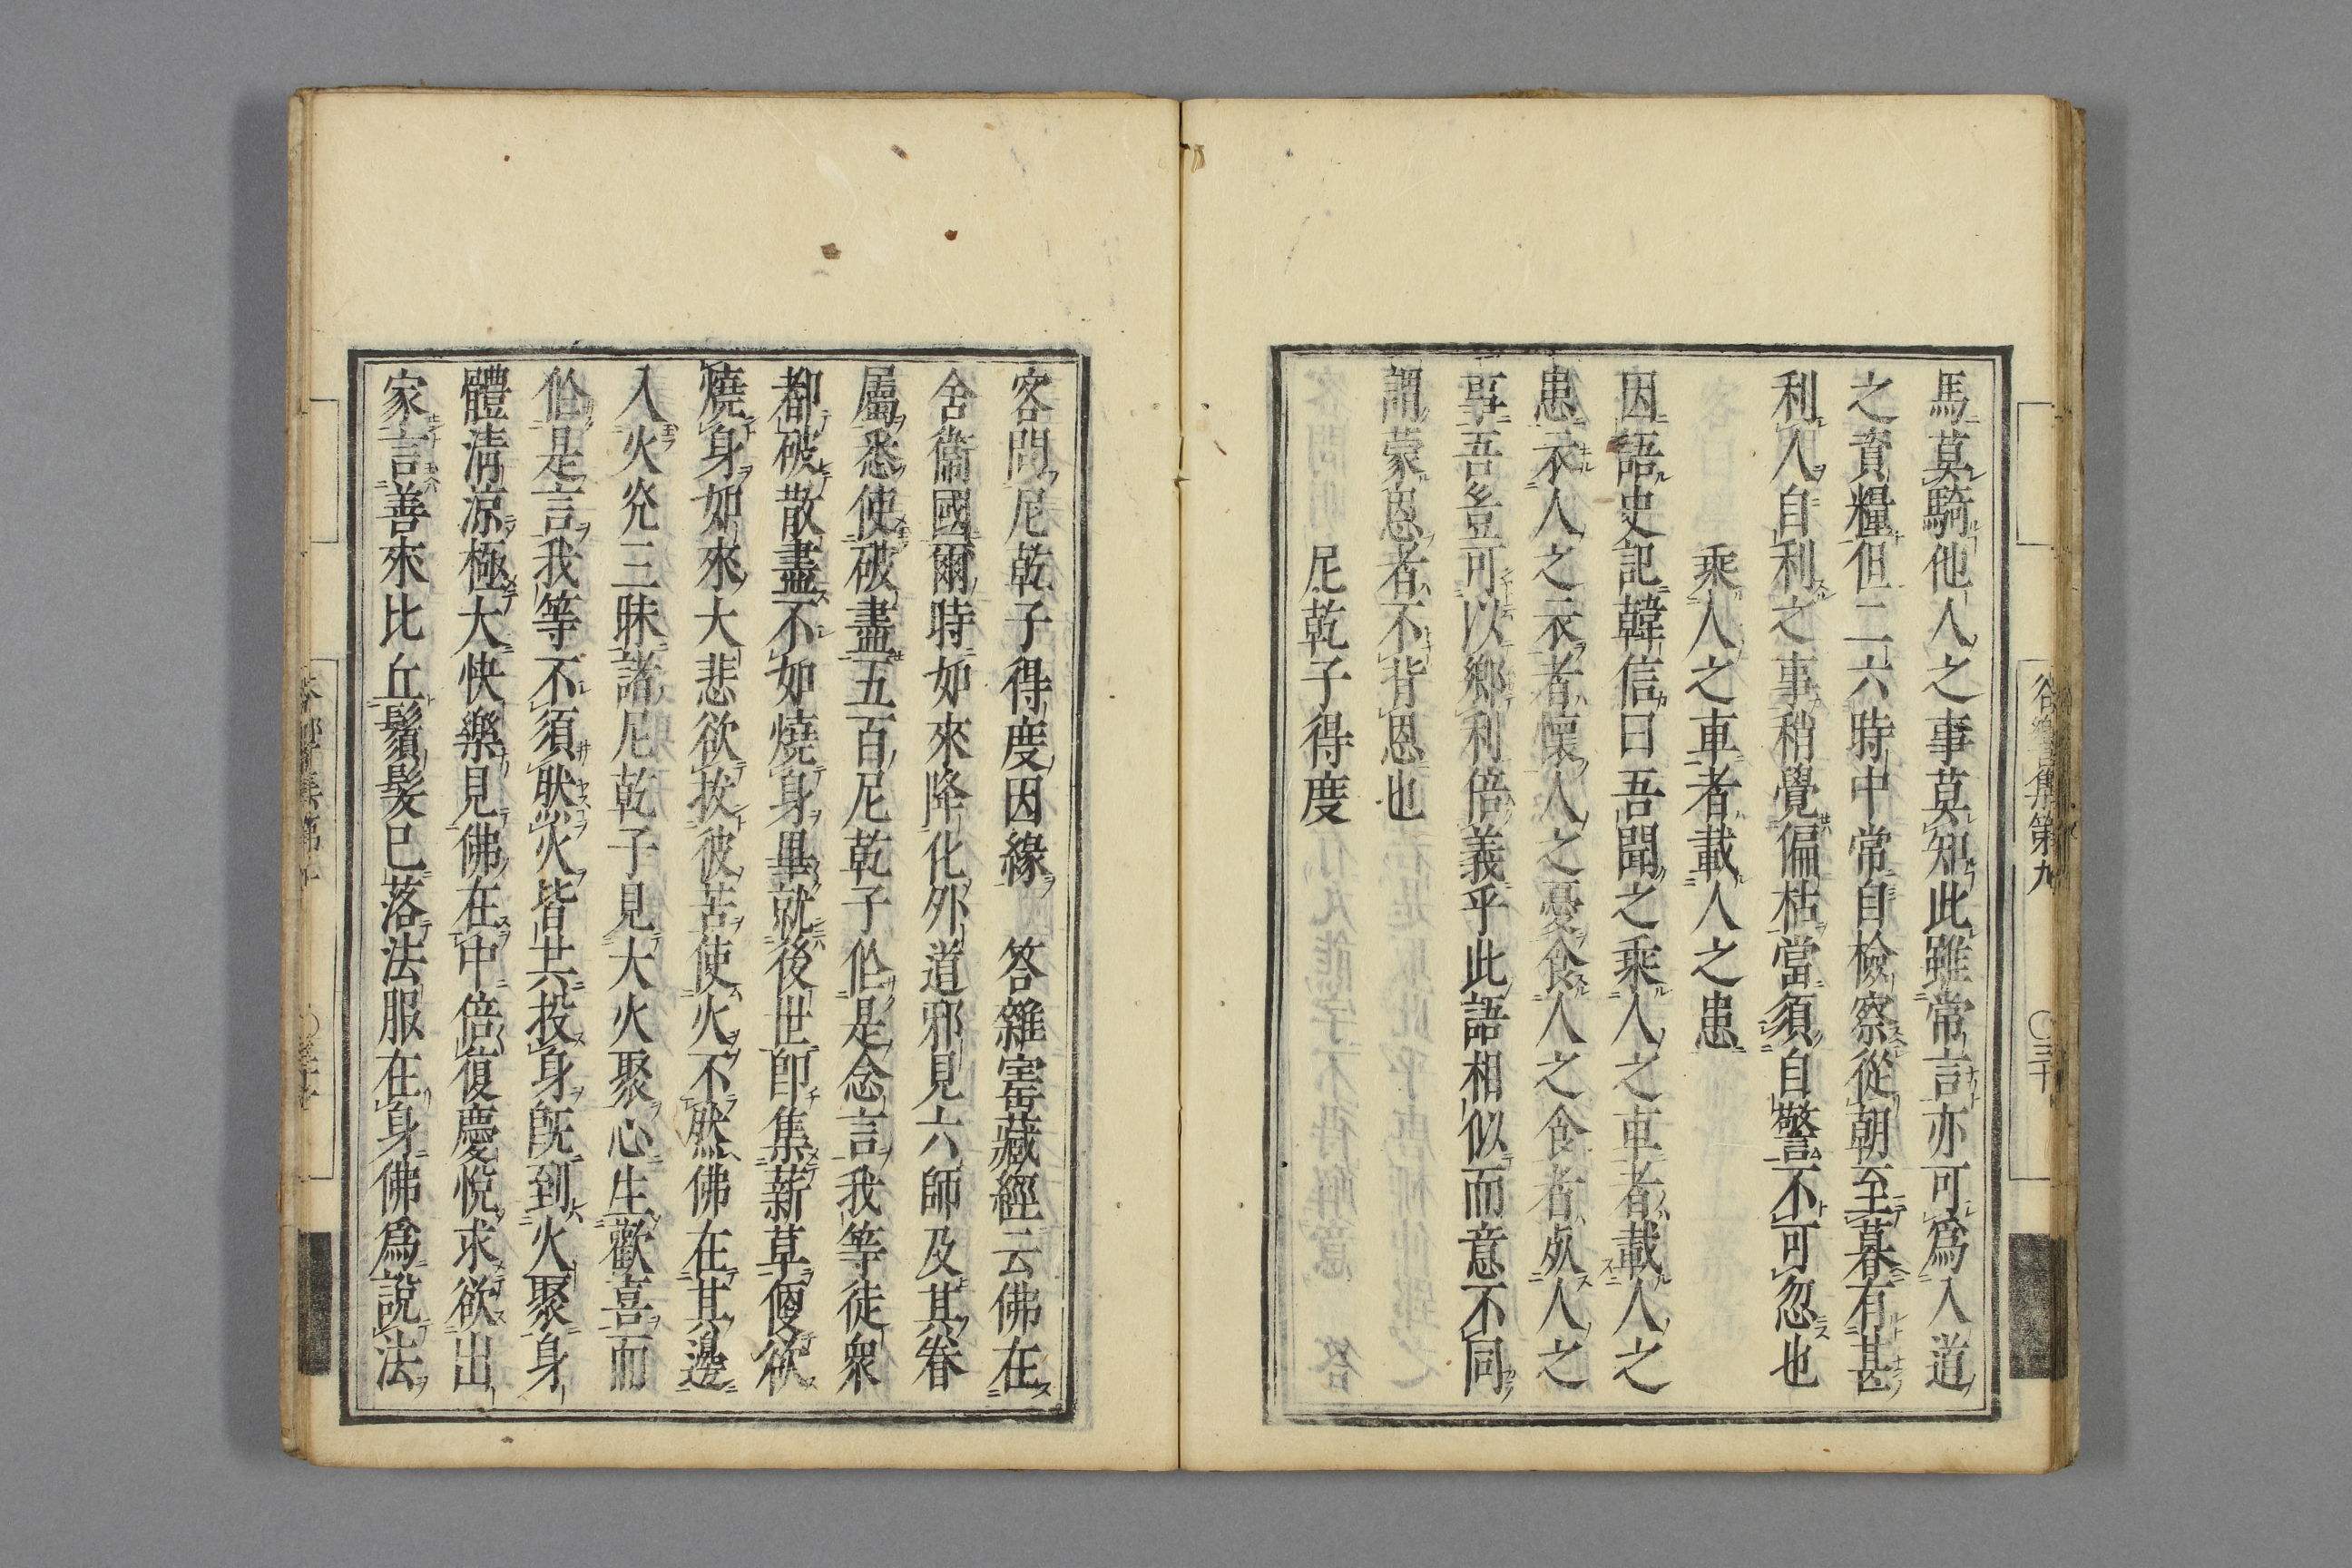 馬莫騎他人之事莫知此雖常言亦可爲入道
之資糧但二六時中常自檢察從朝至暮有甚
利人自利之事稍覺偏枯當須自警不可忽也
乘人之車者載人之患
因語史記韓信曰吾聞之乘人之車者載人之
患衣人之衣者懷人之憂食人之食者死人之
事吾豈可以鄉利倍義乎此語相似而意不同
謂蒙恩者不背恩也
尼乾子得度
客問尼乾子得度因緣 答雜寶藏經云佛在
舍衞國爾時如來降化外道邪見六師及其眷
屬悉使破盡五百尼乾子作是念言我等徒衆
都破散盡不如燒身早就後世即集薪草便欲
燒身如來大悲欲拔彼苦使火不然佛在其邊
入火光三昧諸尼乾子見大火聚心生歡喜而
作是言我等不須然火皆共投身既到火聚身
體淸涼極大快樂見佛在中倍復慶悅求欲出
家言善來比丘鬚髮已落法服在身佛爲說法
谷響集第九
〇三十